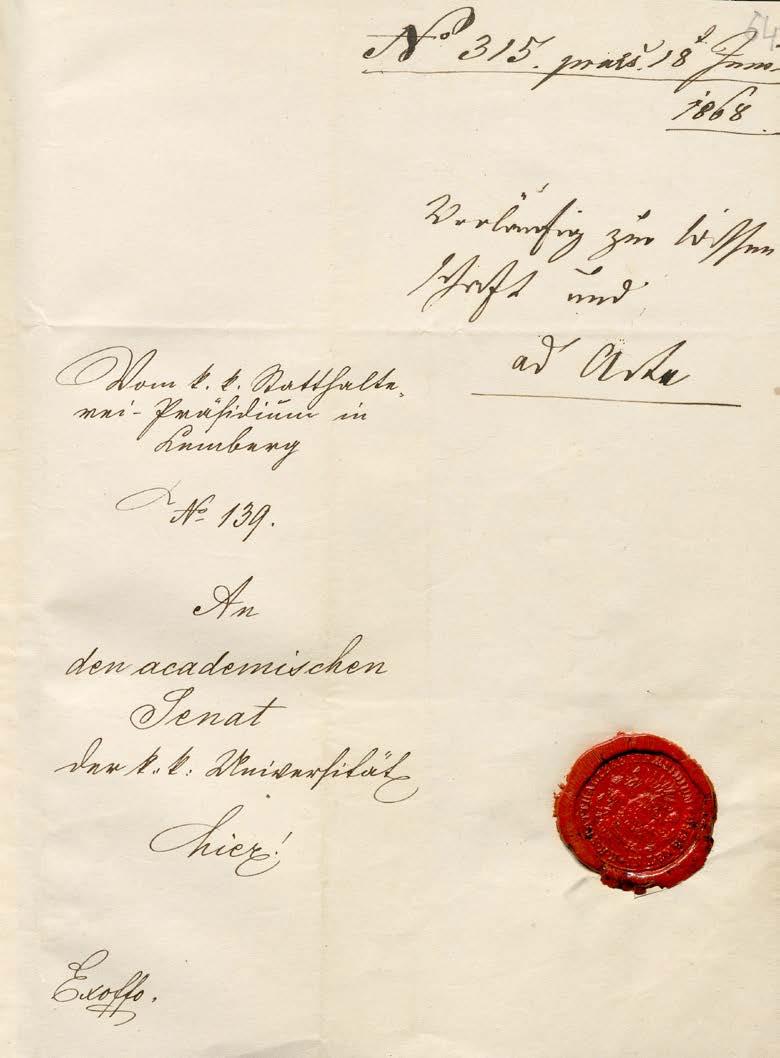 54
No 315. praes. 18t Juni
1868.
Vorläufig zur Wissen
schaft und
ad Acta
Vom k. k. Statthalte-
rei-Präsidium in
Lemberg
No 139.
An
den academischen
Senat
der k. k. Universität
hier!
Exoffo.